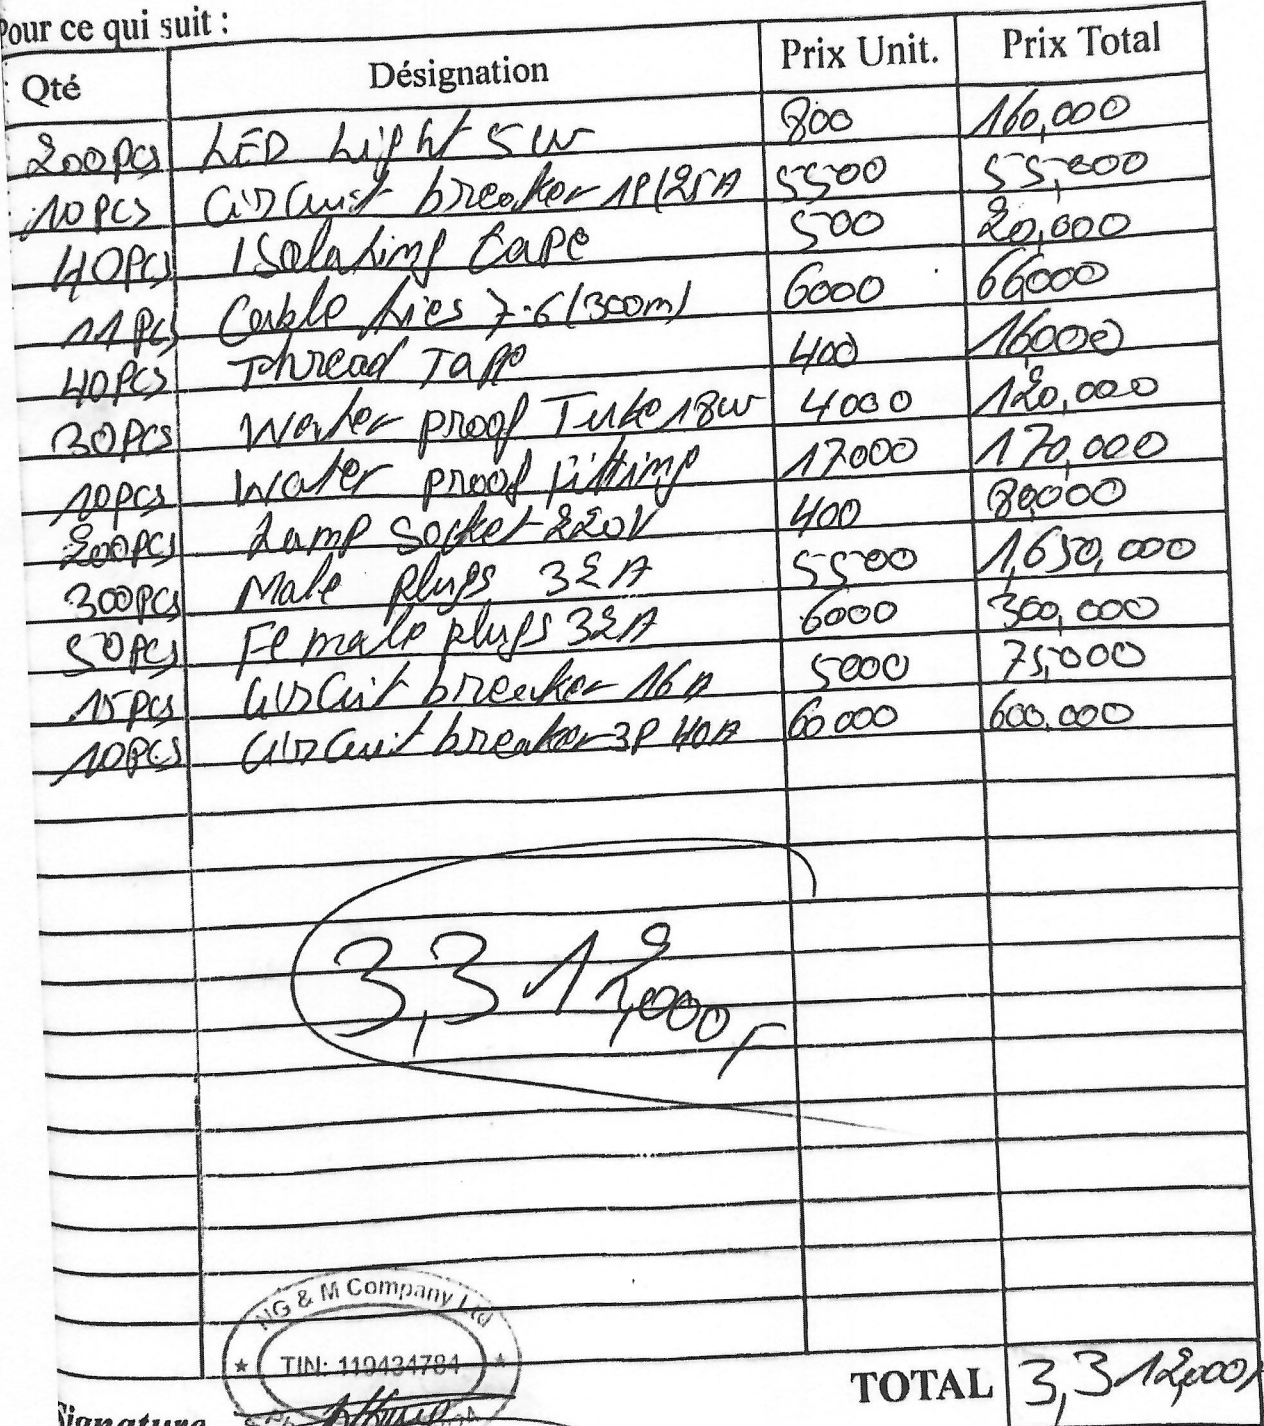 Pour ce qui suit :
Qté Désignation Prix Unit. Prix Total
200pcs LED Light 5W 800 160,000
10pcs Circuit breaker 1P(25A 5500 55,000
40pcs Isolating tape 500 20,000
11pcs Cable ties 7.6(300m) 6000 66000
40pcs Thread Tape 400 16000
30pcs Water proof Tube 18w 4000 120,000
10pcs Water proof fitting 17000 170,000
200pcs Lamp socket 220V 400 80,000
300pcs Male plugs 32A 5500 1,650,000
50pcs Female plugs 32A 6000 300,000
15pcs Circuit breaker 16A 5000 75,000
10pcs Circuit breaker 3P 40A 60000 600,000
3,312,000
NG & M Company Ltd
TIN: 119434784
TOTAL 3,312,000
Signature